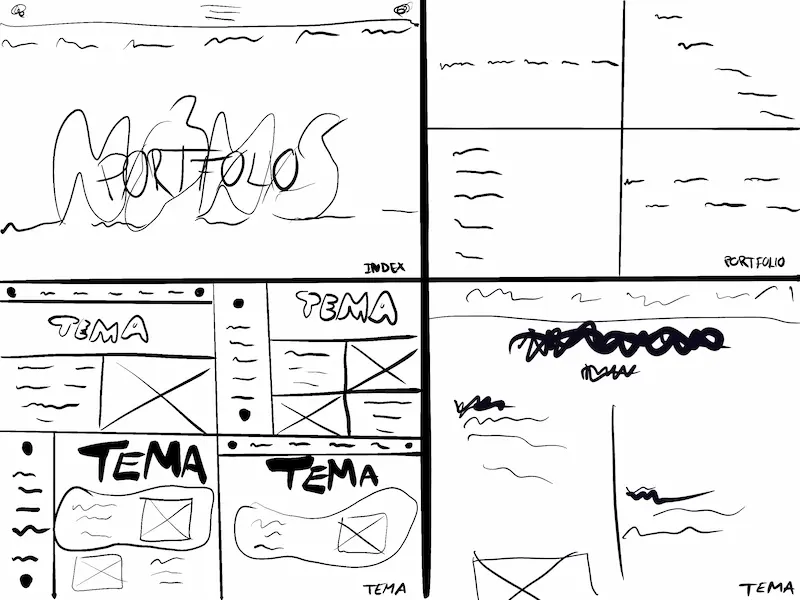 PORTFOLO
INDEX
PORTFOLIO
TEMA
TEMA
TEMA
TEMA
TEMA
TEMA